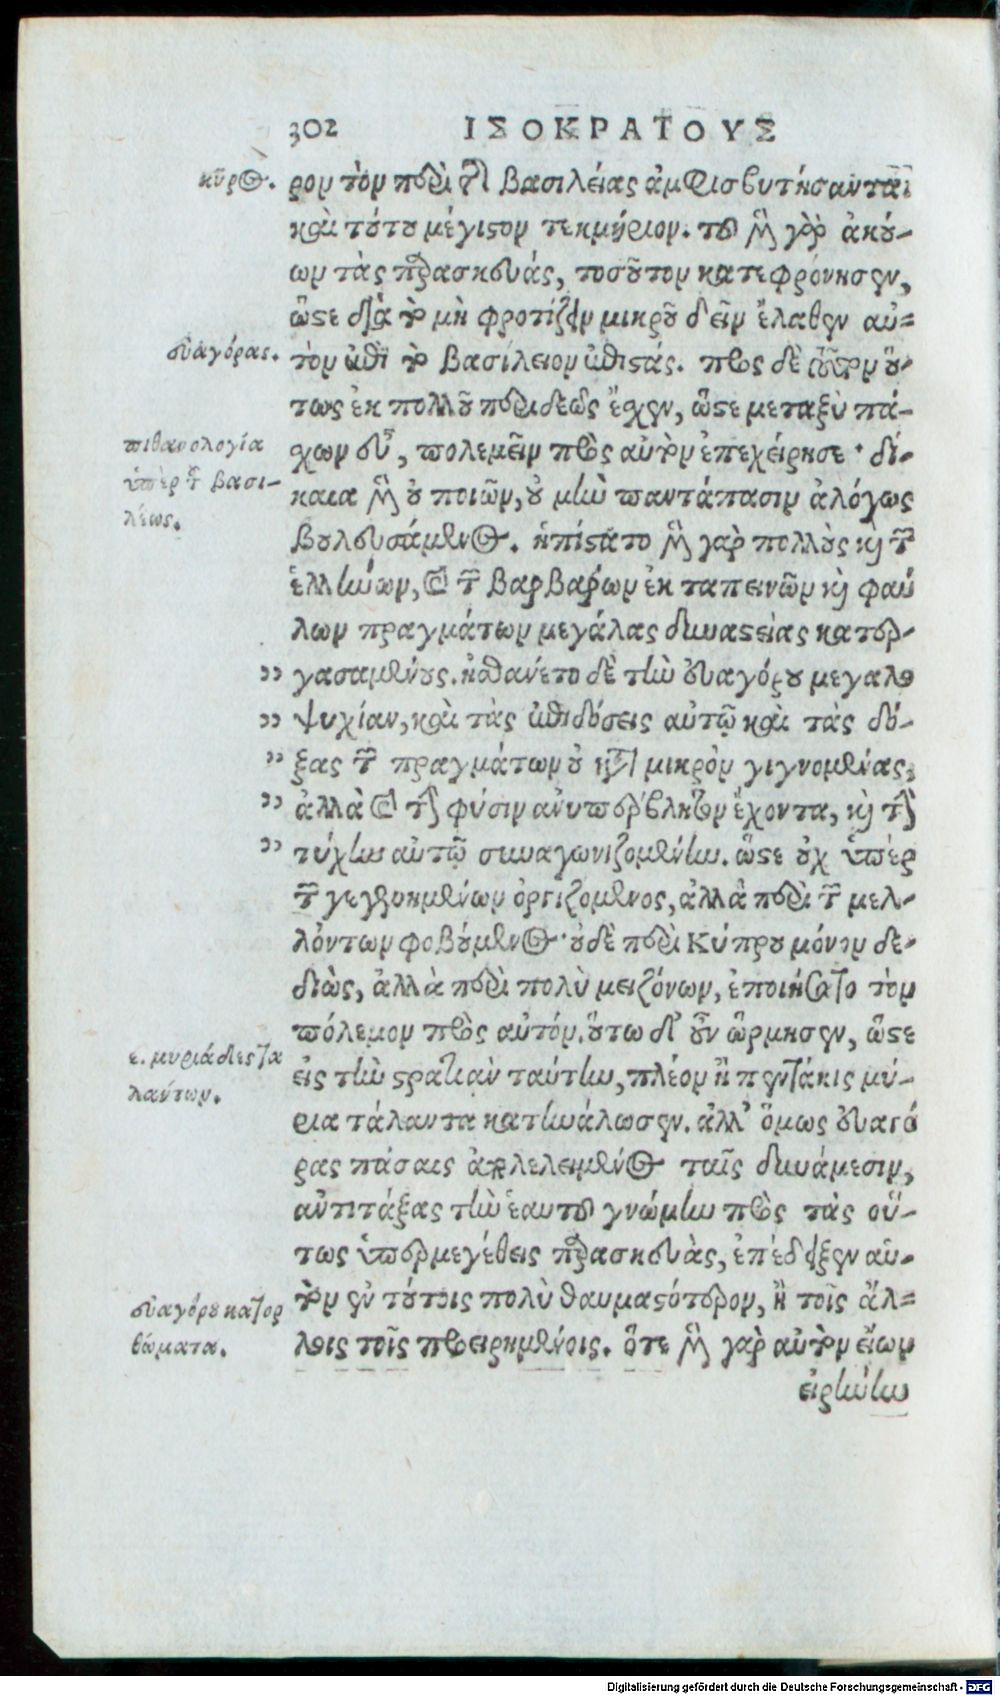 302 ΙΣΟΚΡΑΤΟΥΣ
κῦρος.
ρον τὸν περὶ τῆς βασιλείας ἀμφισβητήσαντα
καὶ τούτου μέγιστον τεκμήριον. τοῦ μὲν γὰρ ἀκού-
ων τὰς παρασκευάς, τοσοῦτον κατεφρόνησεν,
ὥστε διὰ τὸ μὴ φροτίζειν μικροῦ δεῖν ἔλαθεν αὐ-
εὐαγόρας.
τὸν ἐπὶ τὸ βασίλειον ἐπιστάς. πρὸς δὲ τοῦτον οὕ-
τως ἐκ πολλοῦ περιδεῶς ἔσχεν, ὥστε μεταξὺ πά-
πιθανολογία
ὑπὲρ τοῦ βασι-
λέως.
χων εὖ, πολεμεῖν πρὸς αὐτὸν ἐπεχείρησε· δί-
καια μὲν οὐ ποιῶν, οὐ μὴν παντάπασιν ἀλόγως
βουλευσάμενος. ἠπίστατο μὲν γὰρ πολλοὺς καὶ τῶν
ἑλλήνων, καὶ τῶν βαρβάρων ἐκ ταπεινῶν καὶ φαύ
λων πραγμάτων μεγάλας δυναστείας κατερ-
„ γασαμένους. ᾐσθάνετο δὲ τὴν εὐαγόρου μεγαλο
„ ψυχίαν, καὶ τὰς ἐπιδόσεις αὐτῷ καὶ τὰς δό-
„ ξας τῶν πραγμάτων οὐ κατὰ μικρὸν γιγνομένας,
„ ἀλλὰ καὶ τὴν φύσιν ἀνυπέρβλητον ἔχοντα, καὶ τὴν
„ τύχην αὐτῷ συναγωνιζομένην. ὥστε οὐχ ὑπὲρ
τῶν γεγενημένων ὀργιζόμενος, ἀλλὰ περὶ τῶν μελ-
λόντων φοβούμενος· οὐδὲ περὶ Κύπρου μόνον δε-
διὼς, ἀλλὰ περὶ πολὺ μειζόνων, ἐποιήσατο τὸν
πόλεμον πρὸς αὐτόν. οὕτω δ' οὖν ὥρμησεν, ὥστε
ε. μυριάδες τα
λάντων.
εἰς τὴν στρατιὰν ταύτην, πλέον ἢ πεντάκις μύ-
ρια τάλαντα κατηνάλωσεν. ἀλλ' ὅμως εὐαγό
ρας πάσαις ἀπολελειμένος ταῖς δυνάμεσιν,
ἀντιτάξας τὴν ἑαυτοῦ γνώμην πρὸς τὰς οὕ-
τως ὑπερμεγέθεις παρασκευὰς, ἐπέδειξεν αὑ-
εὐαγόρου κατορ
θώματα.
τὸν ἐν τούτοις πολὺ θαυμαστότερον, ἢ τοῖς ἄλ-
λοις τοῖς προειρημένοις. ὅτε μὲν γὰρ αὐτὸν εἴων
εἰρήνην
Digitalisierung gefördert durch die Deutsche Forschungsgemeinschaft - DFG